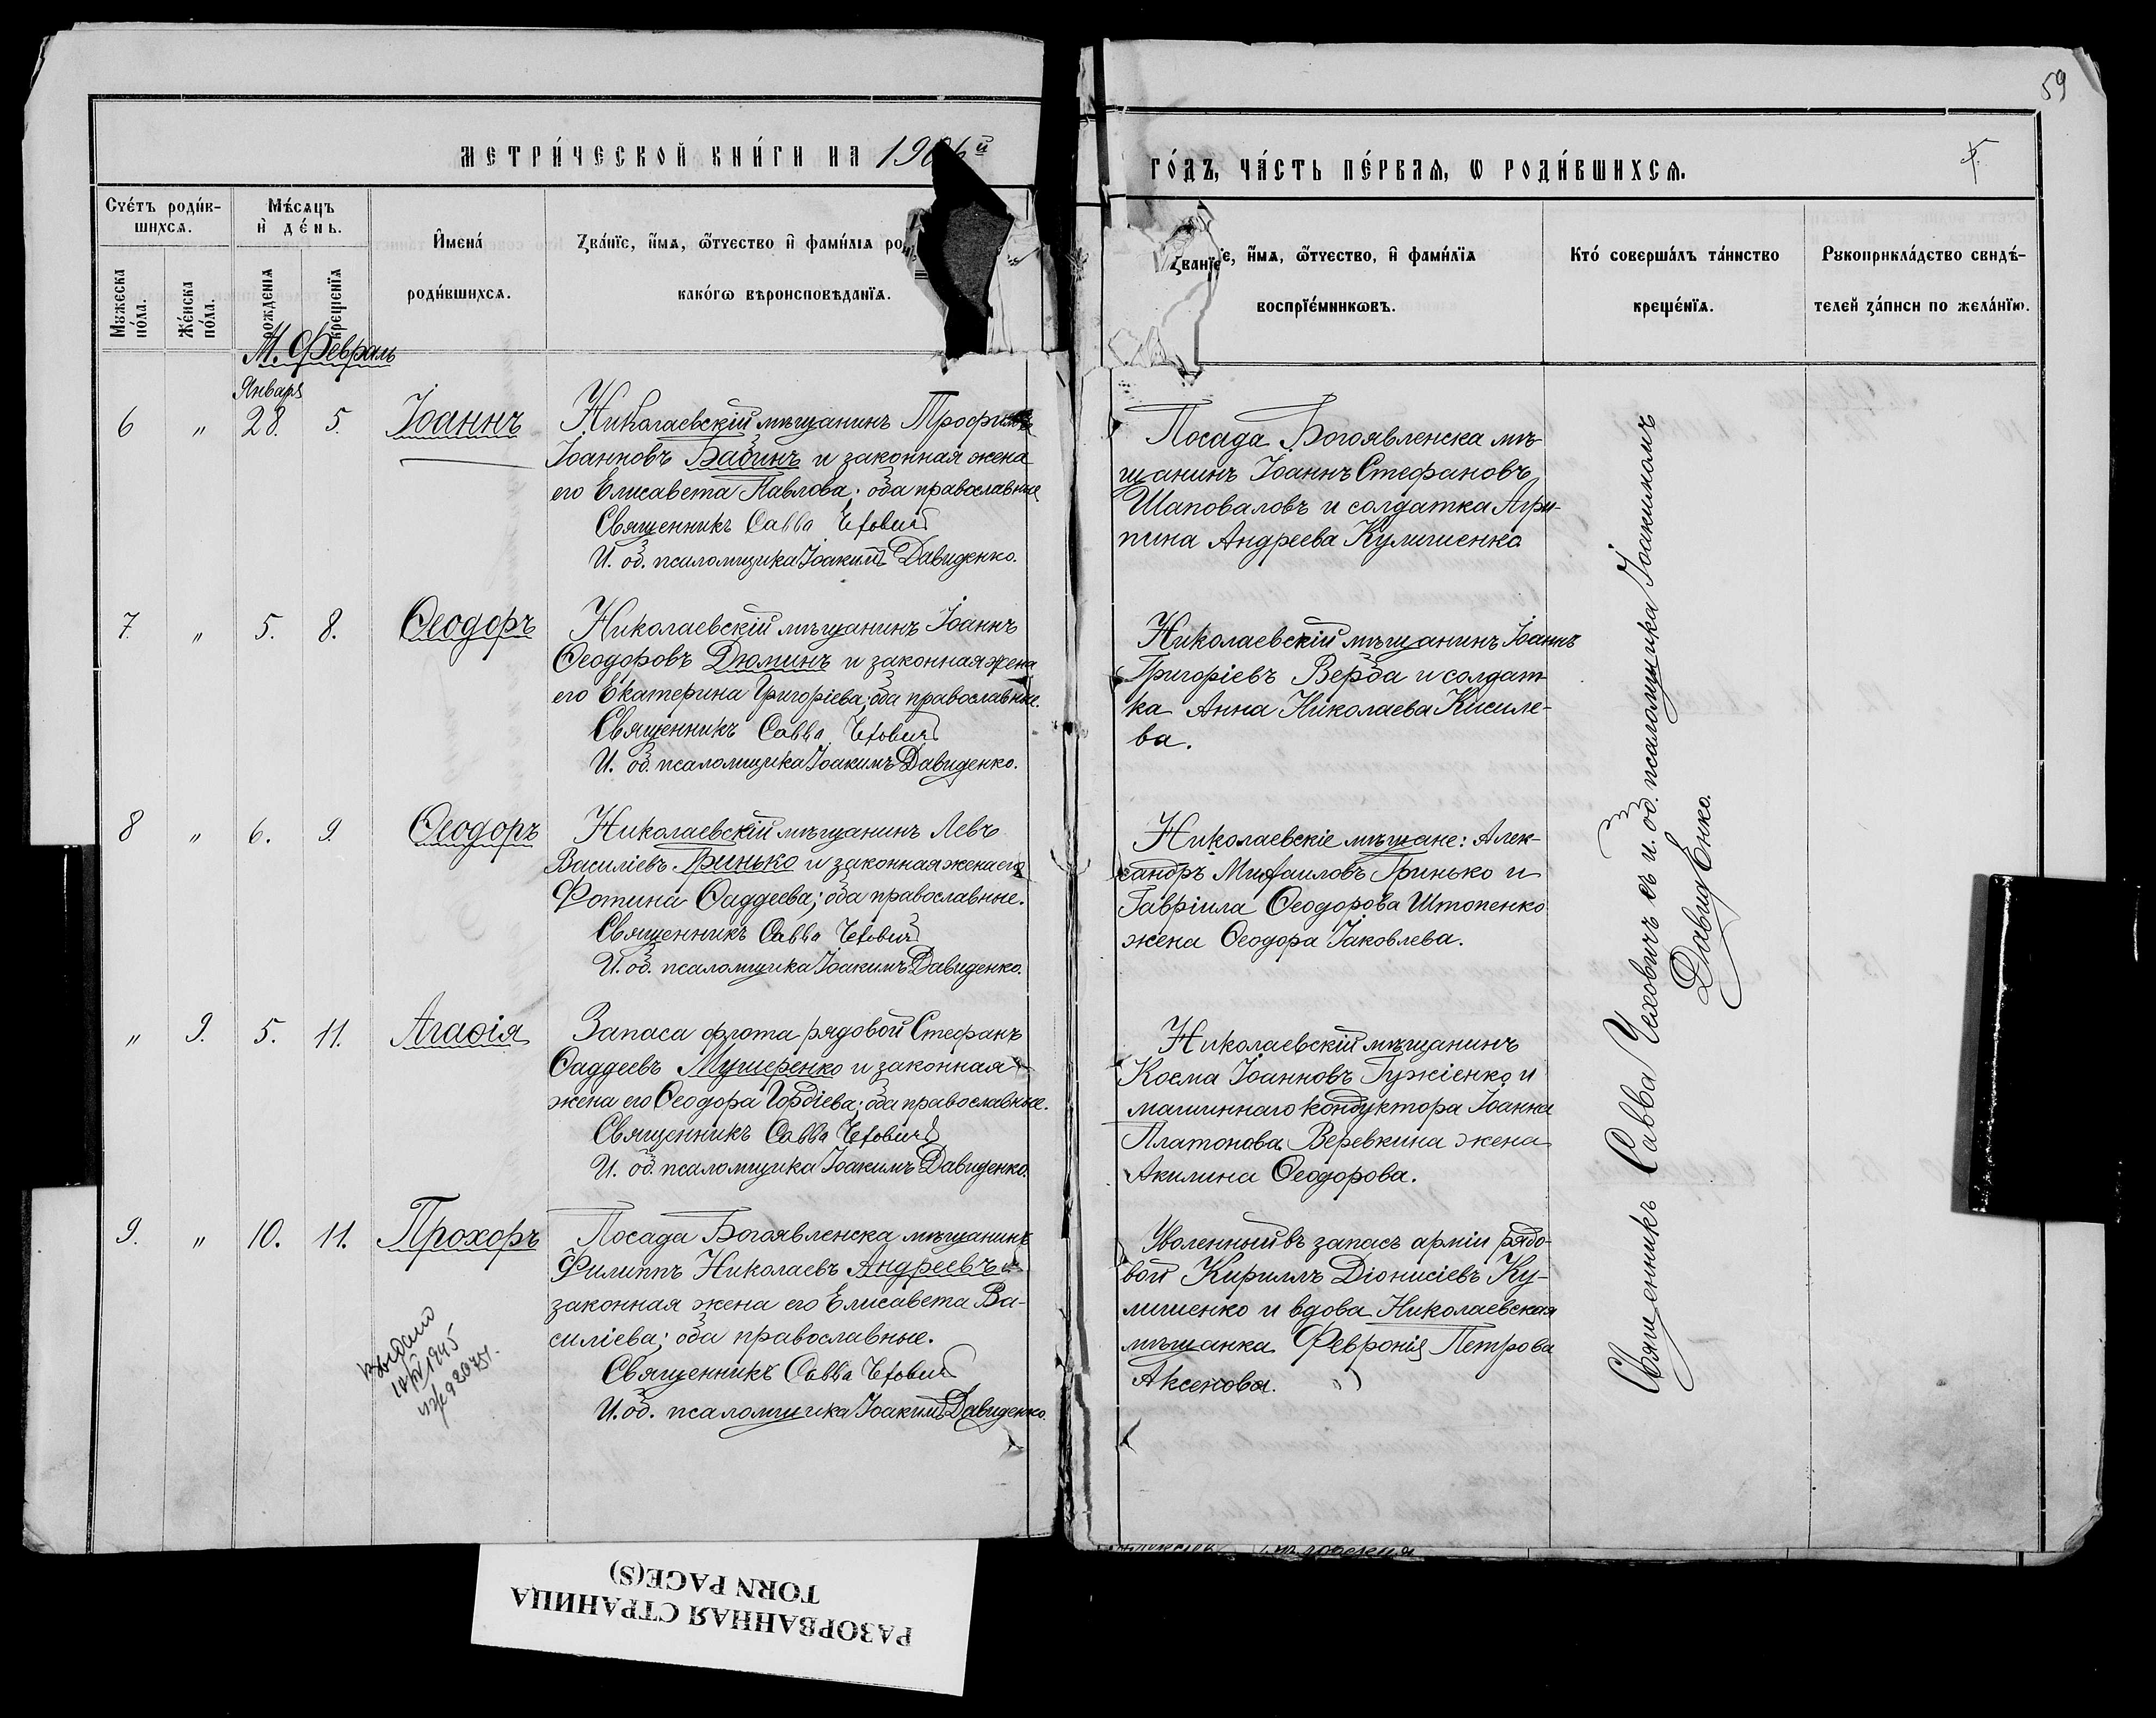 59
МЕТРИ́ЧЕСКОЙ КНИ́ГИ НА 1906й
ГО́ДЪ, ЧА́СТЬ ПЕ́РВАѦ, Ѡ РОДИ́ВШИХСѦ.
Счéтъ роди́в-
шихсѧ.
Мѣ́сѧцъ
и҆ де́нь.
И҆мена́
роди́вшихсѧ.
Зва́нїе, и҆́мѧ, ѻ҆́тчество и҆ фами́лїѧ ро
како́гѡ вѣроисповѣ́данїѧ.
Мꙋжеска
по́ла.
Же́нска
по́ла.
рожденїѧ
крещенїѧ
Званїе, и҆́мѧ, ѻ҆́тчество, и҆ фами́лїѧ
воспрїе́мникѡвъ.
Кто́ соверша́лъ та́инство
креще́нїѧ.
Рꙋкоприкла́дство свидѣ́-
телей за́писи по жела́нїю.
М. Февраль
Января
6 " 28. 5. Іоаннъ
Николаевскій мѣщанинъ Трофимъ
Іоанновъ Бабинъ и законная жена
его Елисавета Павлова; оба православные
Священникъ Савва Чехович
И. об. псаломщика Іоакимъ Давиденко.
Посада Богоявленска мѣ-
щанинъ Іоаннъ Стефановъ
Шаповаловъ и солдатка Агри-
пина Андреева Кулишенко
7. " 5. 8. Ѳеодоръ
Николаевскій мѣщанинъ Іоаннъ
Ѳеодоровъ Дюминъ и законная жена
его Екатерина Григоріева; оба православные.
Священникъ Савва Чехович
И. об. псаломщика Іоакимъ Давиденко.
Николаевскій мѣщанинъ Іоаннъ
Григоріевъ Верба и солдат-
ка Анна Николаева Кисиле-
ва.
8 " 6. 9. Ѳеодоръ
Николаевскій мѣщанинъ Левъ
Василіевъ Гринько и законная жена его
Фотина Ѳаддеева; оба православные.
Священникъ Савва Чехович
И. об. псаломщика Іоакимъ Давиденко.
Николаевскіе мѣщане: Алек-
сандръ Михаиловъ Гринько и
Гавріила Ѳеодорова Штопенко
жена Ѳеодора Іаковлева.
" 9. 5. 11. Агаѳія
Запаса флота рядовой Стефанъ
Ѳаддеевъ Мушеренко и законная
жена его Ѳеодора Гордіева; оба православные.
Священникъ Савва Чехович
И. об. псаломщика Іоакимъ Давиденко.
Николаевскій мѣщанинъ
Косма Іоанновъ Гужіенко и
машиннаго кондуктора Іоанна
Платонова Веревкина жена
Акилина Ѳеодорова.
9. " 10. 11. Прохоръ
Посада Богоявленска мѣщанинъ
Филиппъ Николаевъ Андреевъ и
законная жена его Елисавета Ва-
силіева; оба православные.
Священникъ Савва Чехович
И. об. псаломщика Іоакимъ Давиденко.
Уволенный въ запасъ арміи рядо-
вой Кириллъ Діонисіевъ Ку-
лишенко и вдова Николаевская
мѣщанка Февронія Петрова
Аксенова.
Выдано
1945
Священникъ Савва Чеховичъ съ и. об. псаломщика Іоакимомъ
Давиденко.
РАЗОРВАННАЯ СТРАНИЦА
TORN PAGE(S)